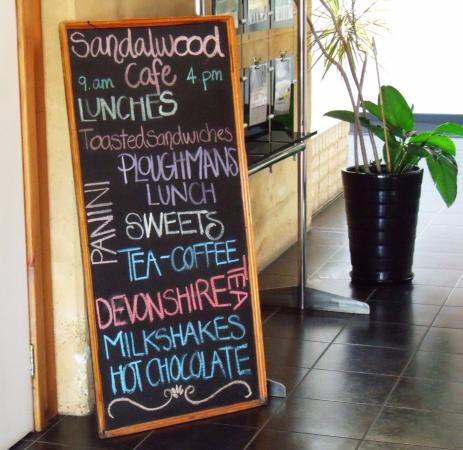 Sandalwood
Cafe
9.am 4.pm
LUNCHES
Toasted Sandwiches
PLOUGHMANS
LUNCH
PANINI
SWEETS
TEA-COFFEE
DEVONSHIRE TEA
MILKSHAKES
HOT CHOCOLATE